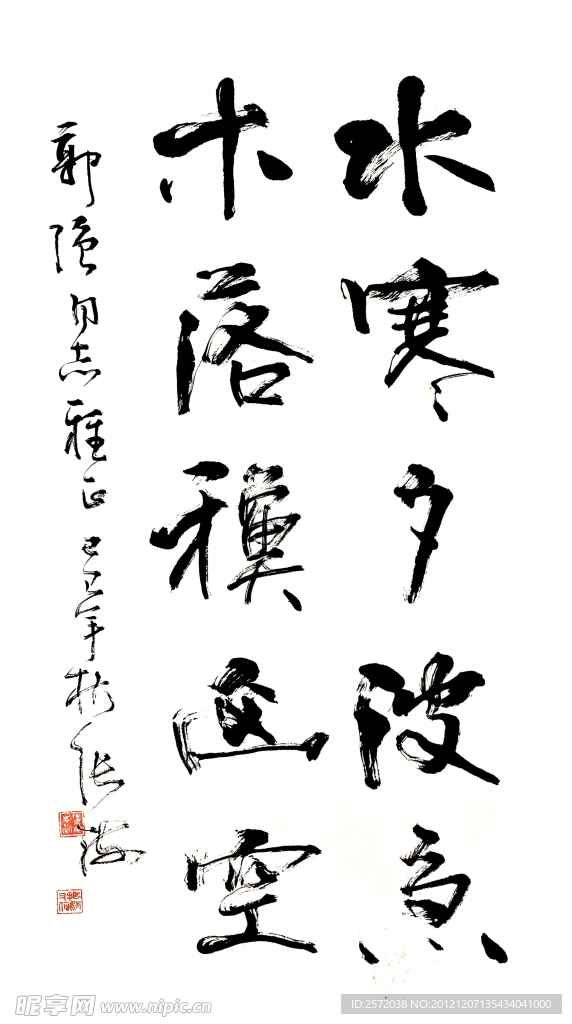 水寒夕波急
木落秋山空
郭強同志雅正 己丑年秋 张海
昵享网 www.nipic.cn
ID:2572038 NO:20121207135434041000